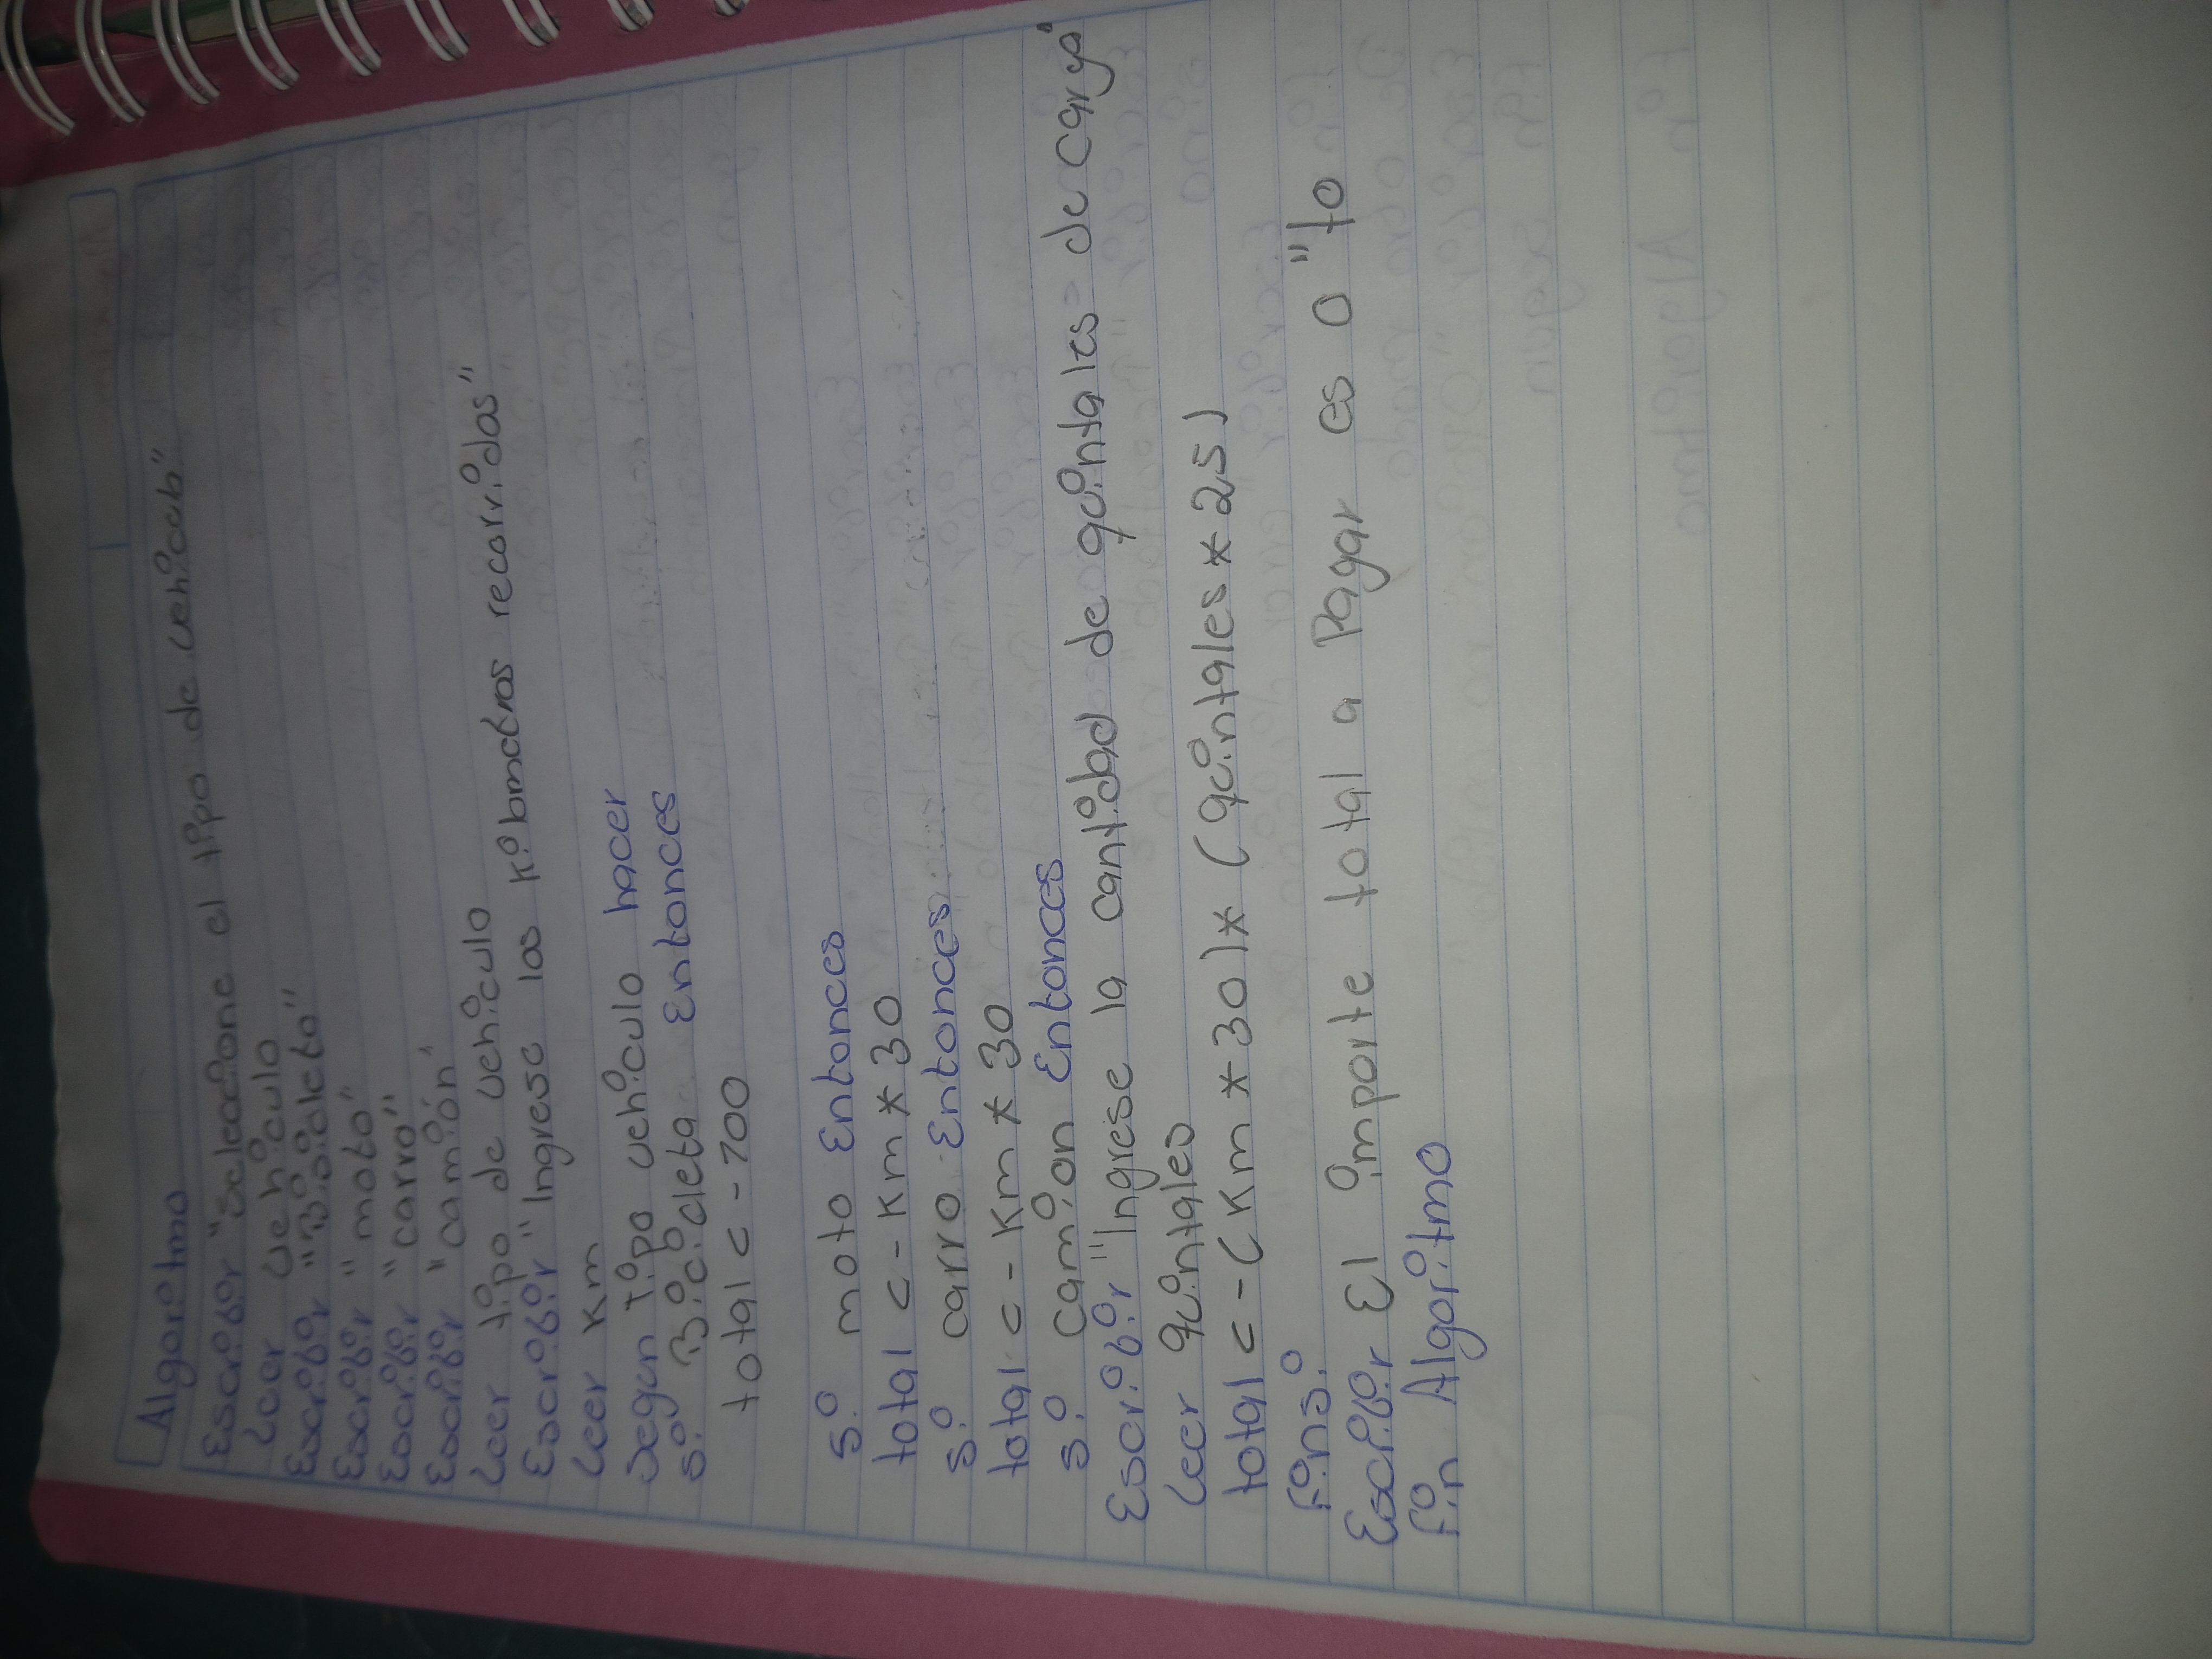 Algoritmo
Escribir "Seleccione el tipo de vehiculo"
Leer vehiculo
Escribir "Bicicleta"
Escribir "moto"
Escribir "carro"
Escribir "camión"
Leer tipo de vehiculo
Escribir "Ingrese los kilometros recorridos"
Leer Km
Segun tipo vehiculo hacer
si Bicicleta Entonces
total <- 100
si moto Entonces
total <- Km * 30
si carro Entonces
total <- Km * 30
si camion Entonces
Escribir "Ingrese la cantidad de quintales de carga"
Leer quintales
total <- (Km * 30) * (quintales * 25)
Finsi
Escribir El importe total a Pagar es 0 "to
Fin Algoritmo